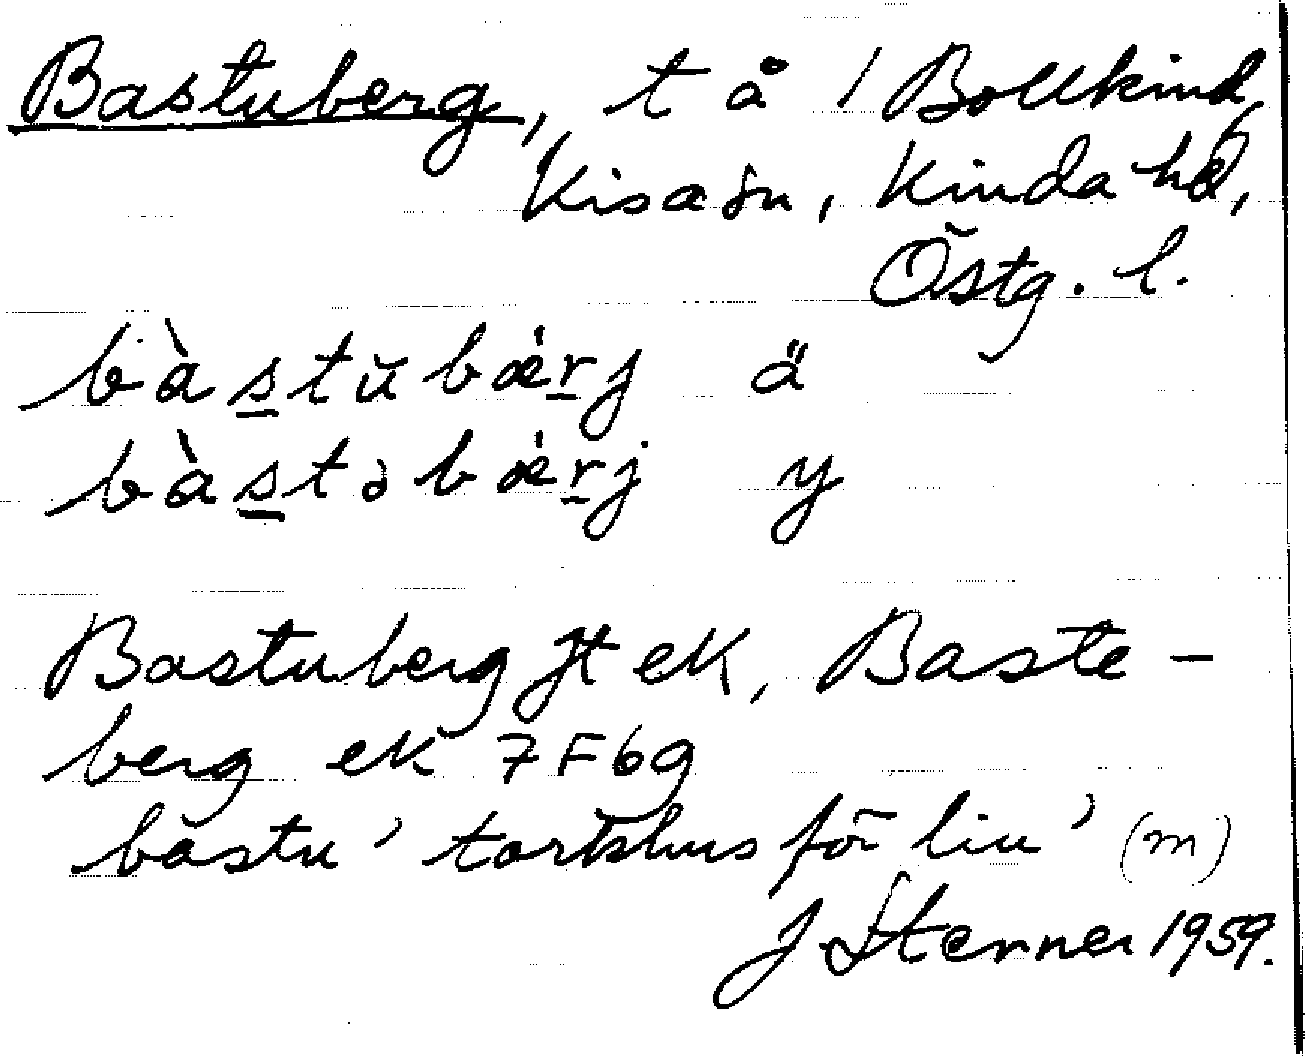 Bastuberg, t å / Bollkind,
Kisa sn, Kinda hd,
Östg. l.
bàstŭbæ̀rj ä
bàstəbæ̀rj y
Bastuberg jt ek, Baste-
berg ek 7F6g
bastu 'torkhus för lin' (m)
J Sterner 1959.